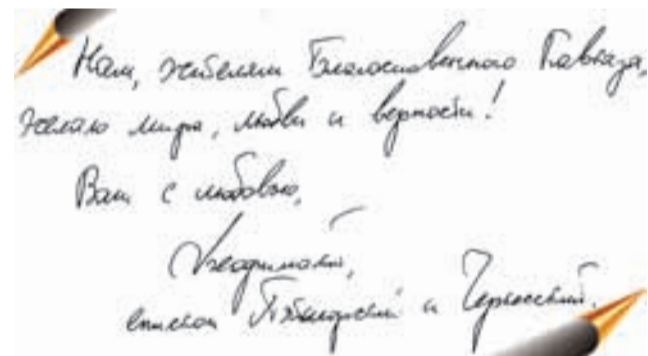 Нам, жителям Благословенного Кавказа,
желаю мира, любви и верности!
Ваш с любовью,
епископ и Черкесский.